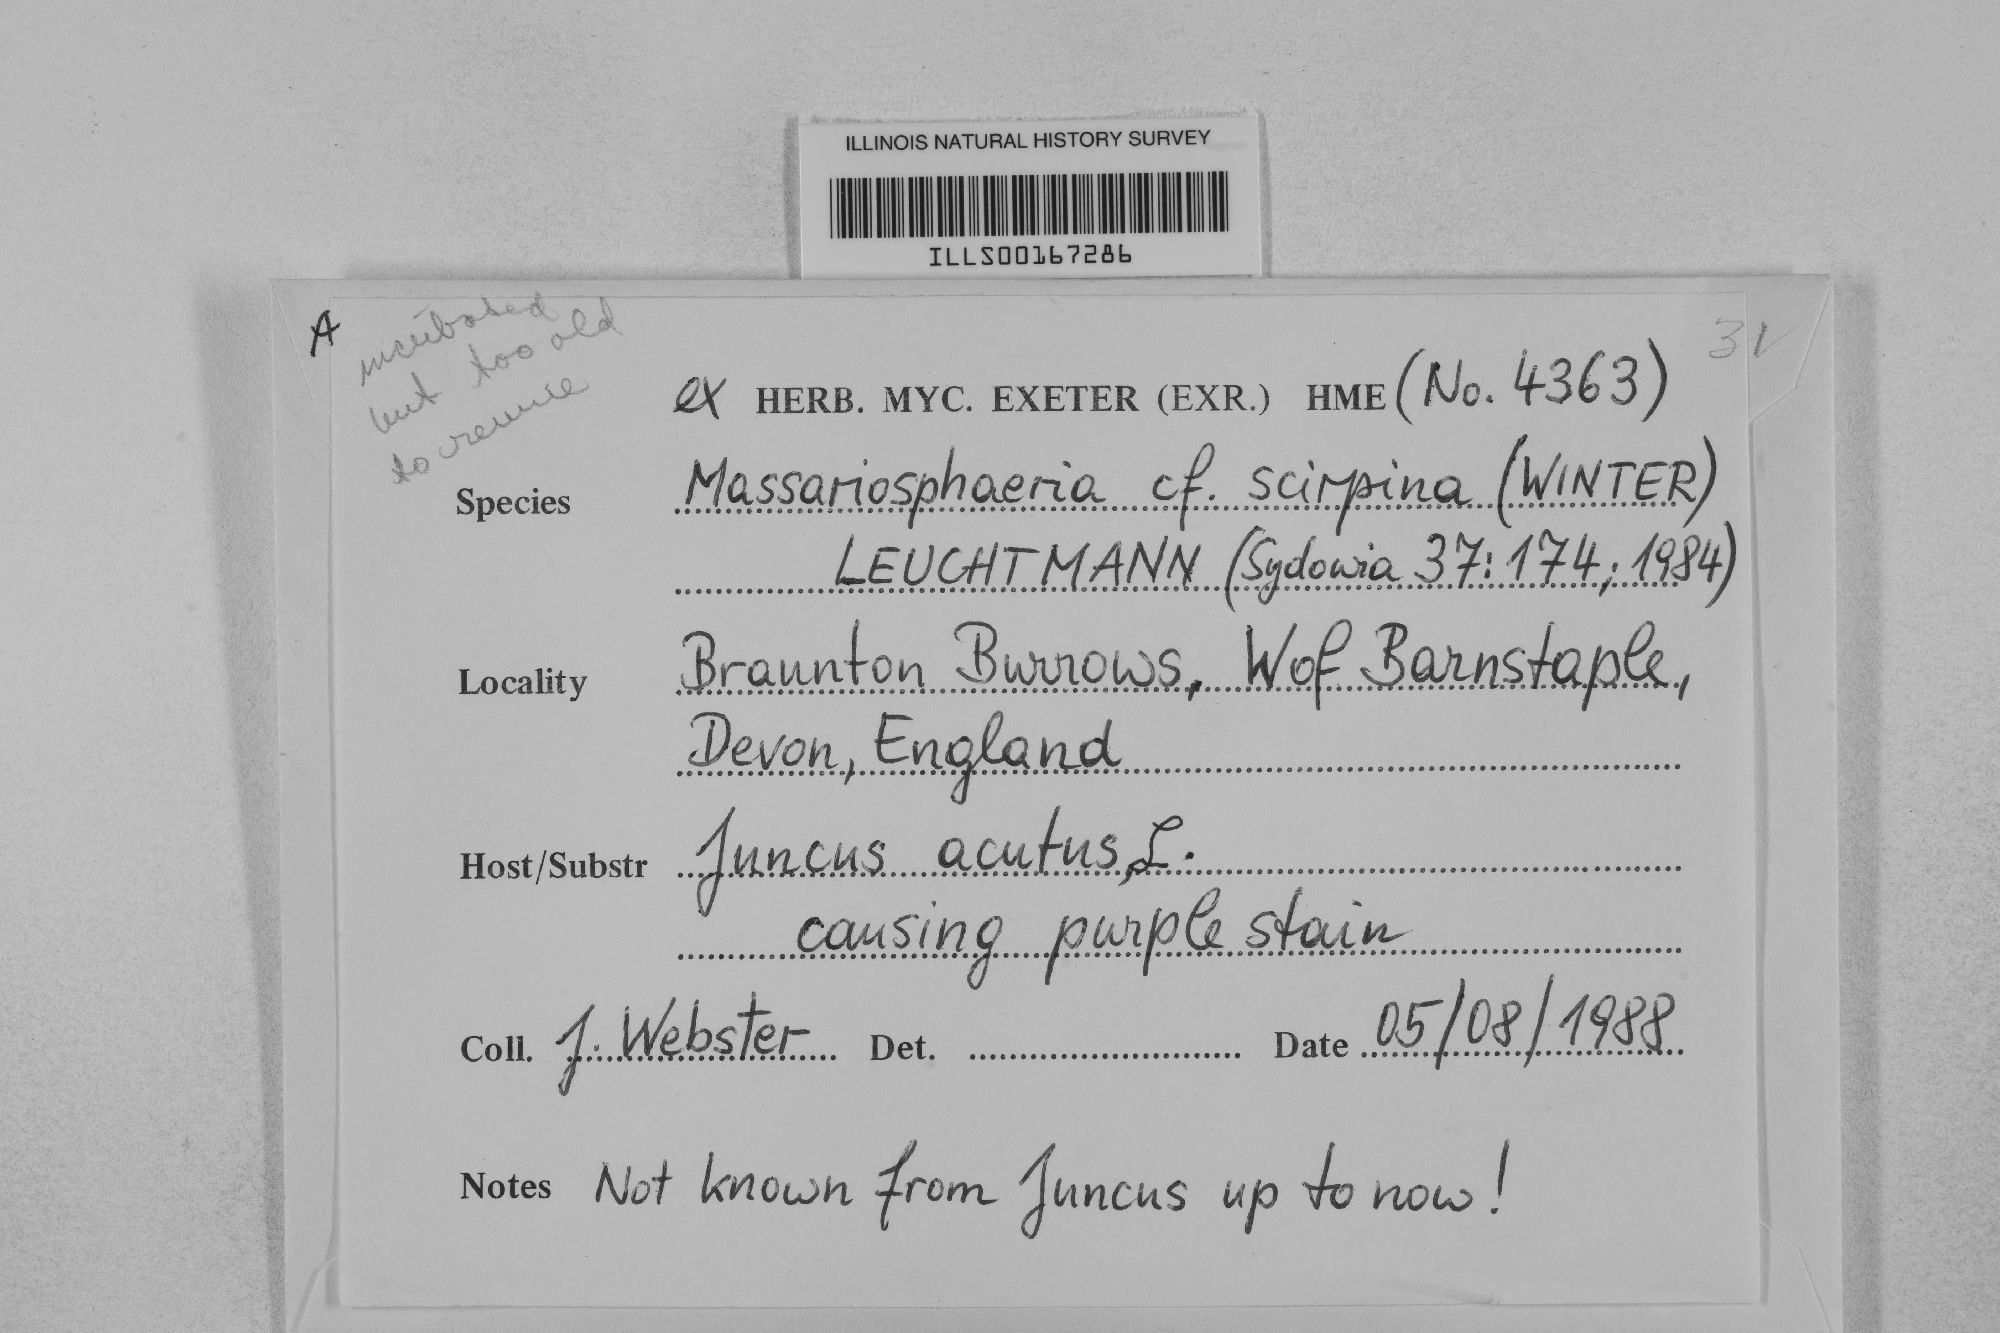 ILLINOIS NATURAL HISTORY SURVEY
ILLS00167286
A
incubated
but too old
to revive
31
ex HERB. MYC. EXETER (EXR.) HME (No. 4363)
Species Massariosphaeria cf. scirpina (WINTER)
LEUCHTMANN (Sydowia 37: 174; 1984)
Locality Braunton Burrows, W of Barnstaple,
Devon, England
Host/Substr Juncus acutus, L.
causing purple stain
Coll. J. Webster Det. Date 05/08/1988
Notes Not known from Juncus up to now!